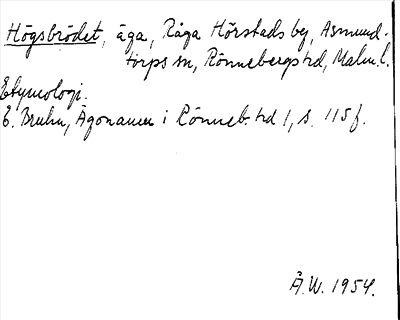 Högsbrödet, äga, Råga Hörstads by, Asmund-
torps sn, Rönnebergs hd, Malm. l.
Etymologi.
E. Bruhn, Ägonamn i Rönneb. hd 1, s. 115 f.
Å.W. 1954.